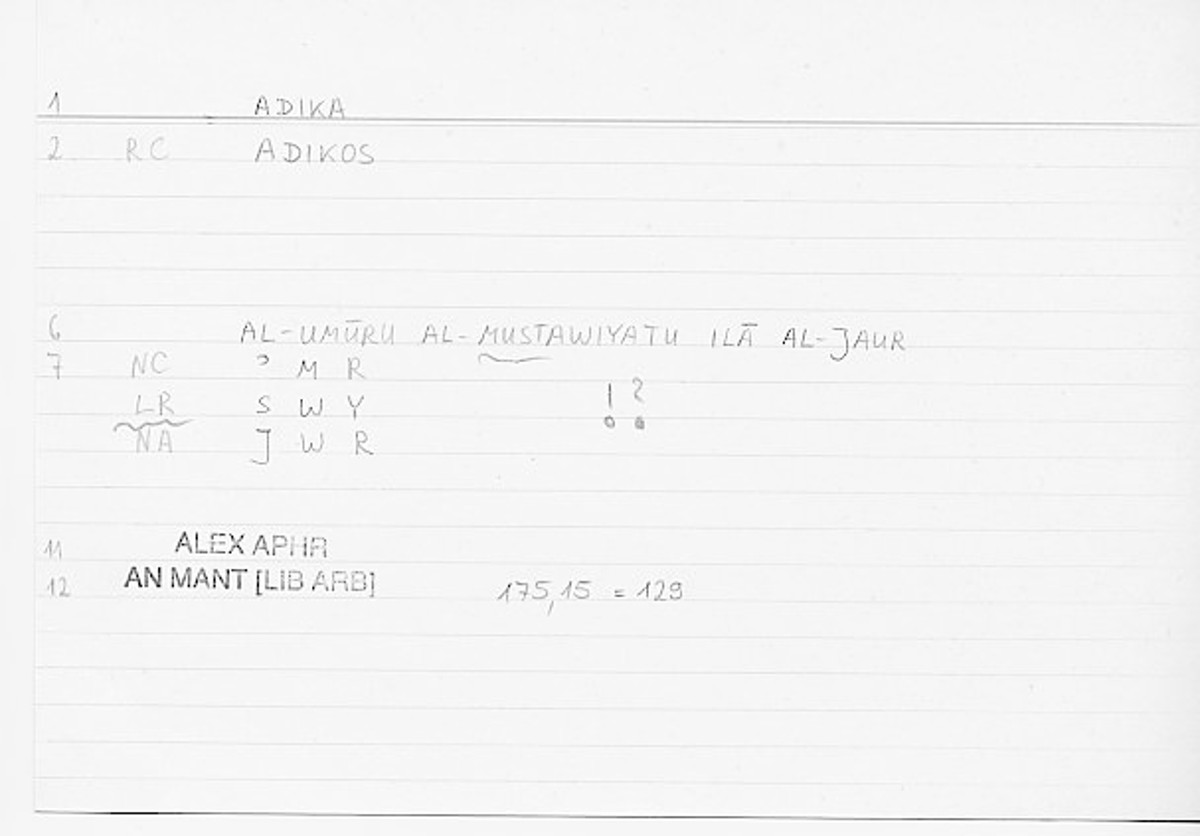 1 ADIKA
2 RC ADIKOS
6 AL-UMŪRU AL-MUSTAWIYATU ILĀ AL-JAUR
7 NC ʾ M R
LR S W Y !?
NA J W R
11 ALEX APHR
12 AN MANT [LIB ARB] 175,15 = 129